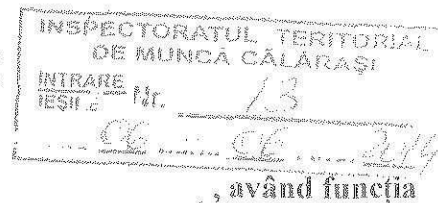 INSPECTORATUL TERITORIAL
DE MUNCĂ CĂLĂRAŞI
INTRARE
IEŞIRE Nr. 13
06 06 2014
, având funcţia